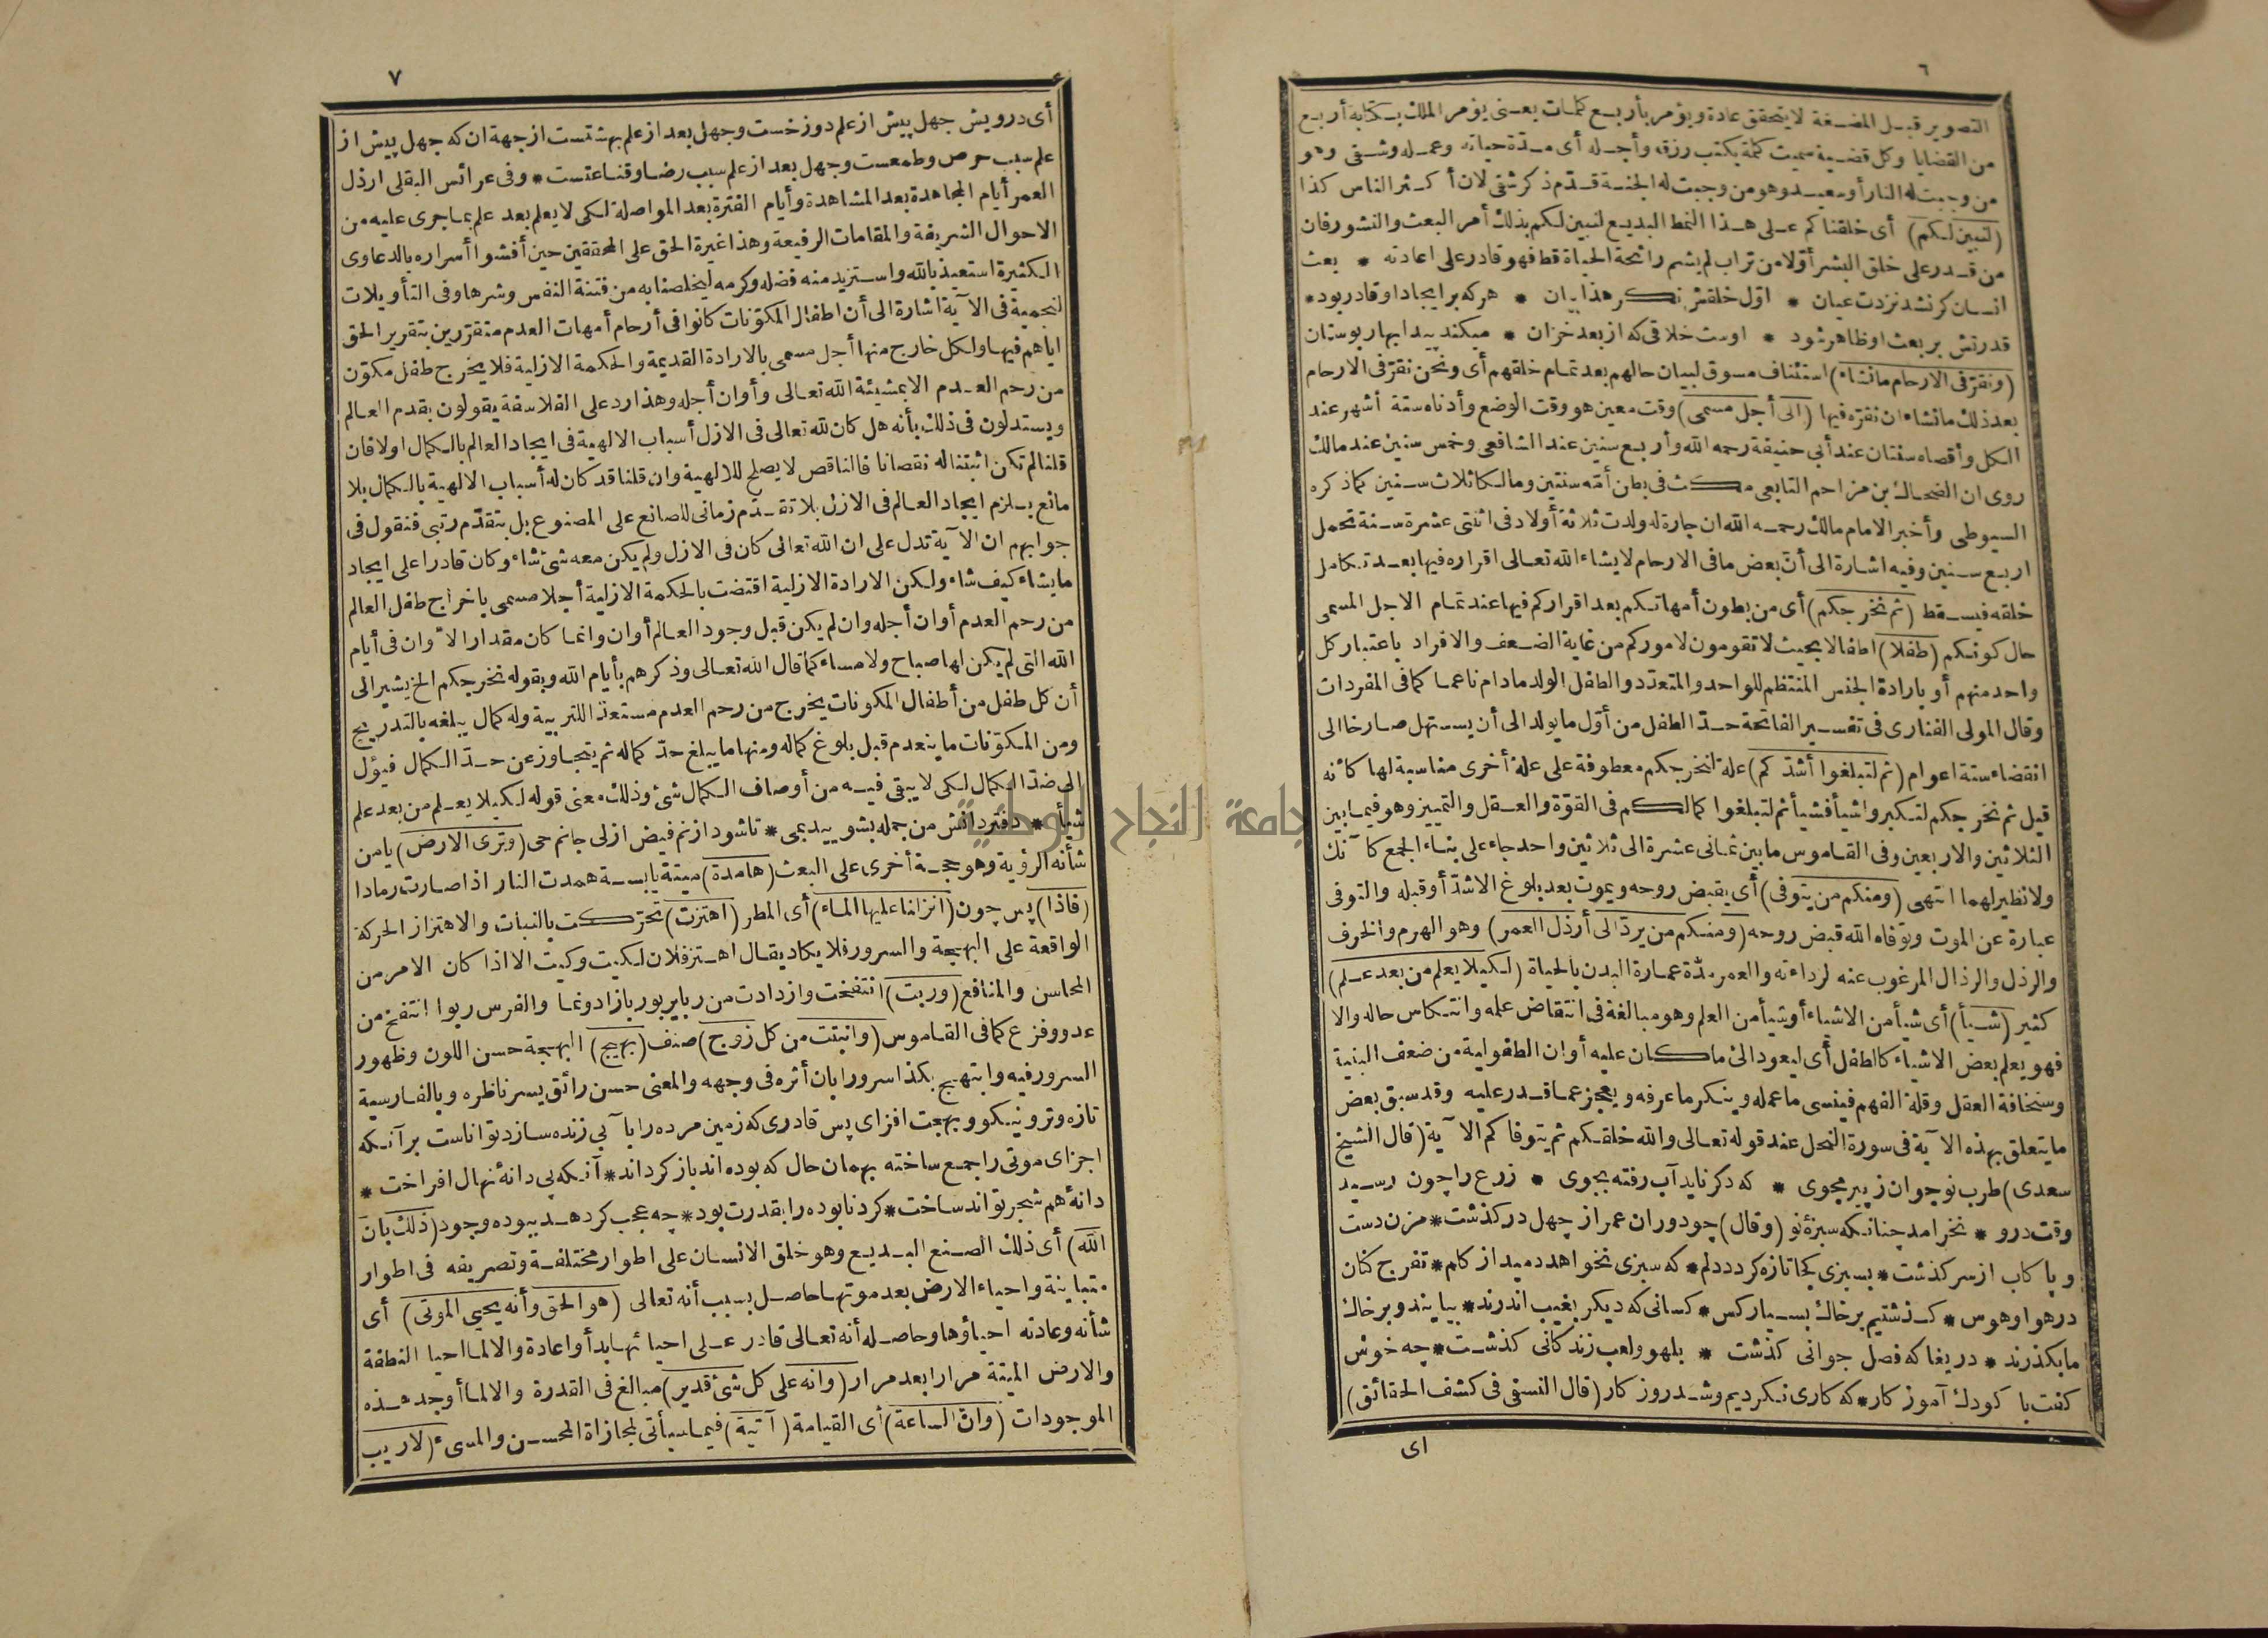 ٦
التصوير قبل المضغة لا يتحقق عادة ويؤمر بأربع كلمات يعنى يؤمر الملك بكتابة أربع
من القضايا وكل قضية سميت كلمة يكتب رزقه وأجله أى مدّة حياته وعمله وشقى وهو
من وجبت له النار أو سعيد وهو من وجبت له الجنة قدّم ذكر شقى لان أكثر الناس كذا
(لنبين لكم) أى خلقنا كم على هذا النمط البديع لنبين لكم بذلك أمر البعث والنشور فان
من قدر على خلق البشر أوّلا من تراب لم يشم رائحة الحياة قط فهو قادر على اعادته * بعث
انسان كر نشد نزدت عيان * اوّل خلقش نكر هذا بيان * هركه بر ايجاد او قادر بود *
قدرتش بر بعث او ظاهر شود * اوست خلاقى كه از بعد خزان * ميكند پيدا بهار بوستان
(ونقرّ فى الارحام ما نشاء) استئناف مسوق لبيان حالهم بعد تمام خلقهم أى ونحن نقرّ فى الارحام
بعد ذلك ما نشاء ان نقرّه فيها (الى أجل مسمى) وقت معين هو وقت الوضع وأدناه ستة أشهر عند
الكل وأقصاه سنتان عند أبى حنيفة رحمه الله وأربع سنين عند الشافعى وخمس سنين عند مالك
روى ان الضحاك بن مزاحم التابعى مكث فى بطن أمّه سنتين ومالكا ثلاث سنين كما ذكره
السيوطى وأخبر الامام مالك رحمه الله ان جارة له ولدت ثلاثة أولاد فى اثنتى عشرة سنة تحمل
اربع سنين وفيه اشارة الى أنّ بعض ما فى الارحام لا يشاء الله تعالى اقراره فيها بعد تكامل
خلقه فيسقط (ثم نخرجكم) أى من بطون أمهاتكم بعد اقراركم فيها عند تمام الاجل المسمى
حال كونكم (طفلا) اطفالا بحيث لا تقومون لاموركم من غاية الضعف والافراد باعتبار كل
واحد منهم أو بارادة الجنس المنتظم للواحد والمتعدّد والطفل الولد مادام ناعما كما فى المفردات
وقال المولى الفنارى فى تفسير الفاتحة حدّ الطفل من أوّل ما يولد الى أن يستهل صارخا الى
انقضاء ستة اعوام (ثم لتبلغوا أشدّكم) علة لنخرجكم معطوفة على علة أخرى مناسبة لها كأنه
قيل ثم نخرجكم لتكبروا شيأ فشيأ ثم لتبلغوا كمالكم فى القوّة والعقل والتمييز وهو فيما بين
الثلاثين والاربعين وفى القاموس ما بين ثمانى عشرة الى ثلاثين واحد جاء على بناء الجمع كآنك
ولا نظير لهما انتهى (ومنكم من يتوفى) أى يقبض روحه ويموت بعد بلوغ الاشدّ أو قبله والتوفى
عبارة عن الموت وتوفاه الله قبض روحه (ومنكم من يردّ الى أرذل العمر) وهو الهرم والخرف
والرذل والرذال المرغوب عنه لرداءته والعمر مدّة عمارة البدن بالحياة (لكيلا يعلم من بعد علم)
كثير (شيأ) أى شيأ من الاشياء أو شيأ من العلم وهو مبالغة فى انتقاض علمه وانتكاس حاله والا
فهو يعلم بعض الاشياء كالطفل أى ليعود الى ما كان عليه أوان الطفولية من ضعف البنية
وسخافة العقل وقلة الفهم فينسى ما عمله وينكر ما عرفه ويعجز عما قدر عليه وقد سبق بعض
ما يتعلق بهذه الآية فى سورة النحل عند قوله تعالى والله خلقكم ثم يتوفاكم الآية (قال الشيخ
سعدى) طرب نوجوان ز پير مجوى * كه دكر نايد آب رفته بجوى * زرع را چون رسيد
وقت درو * نخرامد چنانكه سبزۀ نو (وقال) چو دوران عمر از چهل در كذشت * مزن دست
و پا كاب از سر كذشت * بسبزى كجا تازه كردد دلم * كه سبزى نخواهد دميد از كلم * تفرج كنان
در هوا وهوس * كذشتيم بر خاك بسيار كس * كسانى كه ديكر بغيب اندرند * بيايند وبر خاك
ما بكذرند * دريغا كه فصل جوانى كذشت * بلهو ولعب زندكانى كذشت * چه خوش
كفت با كودك آموزكار * كه كارى نكرديم وشد روزكار (قال النسفى فى كشف الحقائق)
اى
٧
أى درويش جهل پيش از علم دوزخست وجهل بعد از علم بهشتست از جهة ان كه جهل پيش از
علم سبب حرص وطمعست وجهل بعد از علم سبب رضا وقناعتست * وفى عرائس البقلى ارذل
العمر أيام المجاهدة بعد المشاهدة وأيام الفترة بعد المواصلة لكى لا يعلم بعد علم بما جرى عليه من
الاحوال الشريفة والمقامات الرفيعة وهذا غيرة الحق على المحققين حين أفشوا أسراره بالدعاوى
الكثيرة استعيذ بالله واستزيد منه فضله وكرمه ليخلصنا به من فتنة النفس وشرها وفى التأويلات
النجمية فى الآية اشارة الى أن اطفال المكوّنات كانوا فى أرحام أمهات العدم متقرّرين بتقرير الحق
اياهم فيها ولكل خارج منها أجل مسمى بالارادة القديمة والحكمة الازلية فلا يخرج طفل مكوّن
من رحم العدم الا بمشيئة الله تعالى وأوان أجله وهذا رد على الفلاسفة يقولون بقدم العالم
ويستدلون فى ذلك بأنه هل كان لله تعالى فى الازل أسباب الالهية فى ايجاد العالم بالكمال اولا فان
قلنا لم تكن اثبتنا له نقصانا فالناقص لا يصلح للالهية وان قلنا قد كان له أسباب الالهية بالكمال بلا
مانع يلزم ايجاد العالم فى الازل بلا تقدّم زمانى للصانع على المصنوع بل بتقدّم رتبى فنقول فى
جوابهم ان الآية تدل على ان الله تعالى كان فى الازل ولم يكن معه شئ شاء وكان قادرا على ايجاد
ما يشاء كيف شاء ولكن الارادة الازلية اقتضت بالحكمة الازلية أجلا مسمى باخراج طفل العالم
من رحم العدم أوان أجله وان لم يكن قبل وجود العالم أوان وانما كان مقدار الاوان فى أيام
الله التى لم يكن لها صباح ولا مساء كما قال الله تعالى وذكرهم بأيام الله وبقوله نخرجكم الخ يشير الى
أن كل طفل من أطفال المكونات يخرج من رحم العدم مستعدّ للتربية وله كمال يبلغه بالتدريج
ومن المكوّنات ما ينعدم قبل بلوغ كماله ومنها ما يبلغ حدّ كماله ثم يتجاوز عن حدّ الكمال فيؤل
الى ضدّ الكمال لكى لا يبقى فيه من أوصاف الكمال شئ وذلك معنى قوله لكيلا يعلم من بعد علم
شيأ * دفتر دانش من جمله بشوييد بمى * تا شود از نم فيض ازلى جانم حى (وترى الارض) يا من
شأنه الرؤية وهو حجة أخرى على البعث (هامدة) ميتة يابسة همدت النار اذا صارت رمادا
(فاذا) پس چون (انزلنا عليها الماء) أى المطر (اهتزت) تحرّكت بالنبات والاهتزاز الحركة
الواقعة على البهجة والسرور فلا يكاد يقال اهتز فلان لكيت وكيت الا اذا كان الامر من
المحاسن والمنافع (وربت) انتفخت وازدادت من ربا يربو ربا زاد ونما والفرس ربوا انتفخ من
عدو وفزع كما فى القاموس (وانبتت من كل زوج) صنف (بهيج) البهجة حسن اللون وظهور
السرور فيه وابتهج بكذا سرورا بان أثره فى وجهه والمعنى حسن رائق يسر ناظره وبالفارسية
تازه وتر ونيكو وبهجت افزاى پس قادرى كه زمين مرده را بآبى زنده سازد تواناست بر آنكه
اجزاى موتى را جمع ساخته بهمان حال كه بوده اند باز كرداند * آنكه پى دانۀ نهال افراخت *
دانۀ هم شجر تواند ساخت * كرد نابوده را بقدرت بود * چه عجب كر دهد ببوده وجود (ذلك بان
الله) أى ذلك الصنع البديع وهو خلق الانسان على اطوار مختلفة وتصريفه فى اطوار
متباينة واحياء الارض بعد موتها حاصل بسبب أنه تعالى (هو الحق وأنه يحيي الموتى) أى
شأنه وعادته احياؤها وحاصله أنه تعالى قادر على احيائها بدأ واعادة والا لما احيا النطفة
والارض الميتة مرارا بعد مرار (وانه على كل شئ قدير) مبالغ فى القدرة والا لما أوجد هذه
الموجودات (وان الساعة) أى القيامة (آتية) فيما سيأتى لمجازاة المحسن والمسىء (لاريب
جامعة النجاح الوطنية